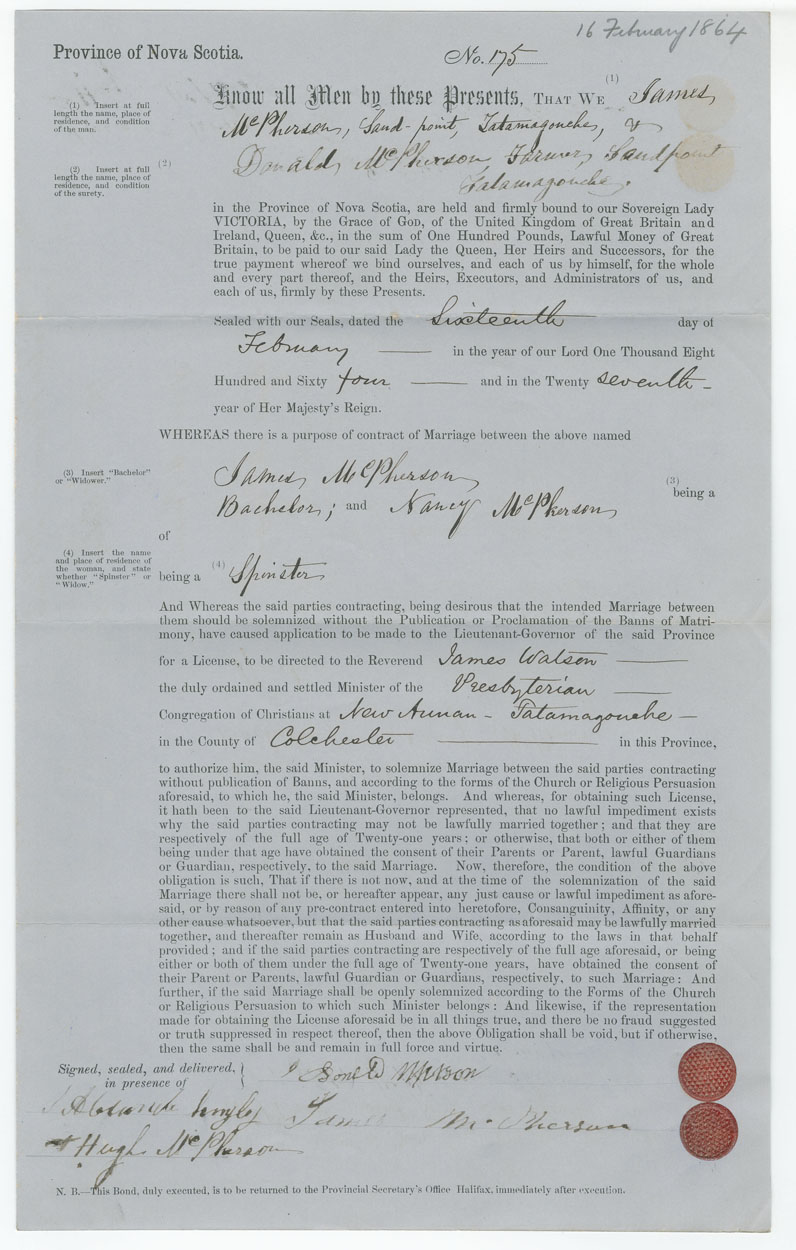 16 February 1864
Province of Nova Scotia.
No. 175
Know all Men by these Presents, THAT WE (1) James
McPherson, Sand-point, Tatamagouche, &
(1) Insert at full
length the name, place of
residence, and condition
of the man.
(2) Donald McPherson, Farmer, Sandpoint
Tatamagouche.
(2) Insert at full
length the name, place of
residence, and condition
of the surety.
in the Province of Nova Scotia, are held and firmly bound to our Sovereign Lady
VICTORIA, by the Grace of GOD, of the United Kingdom of Great Britain and
Ireland, Queen, &c., in the sum of One Hundred Pounds, Lawful Money of Great
Britain, to be paid to our said Lady the Queen, Her Heirs and Successors, for the
true payment whereof we bind ourselves, and each of us by himself, for the whole
and every part thereof, and the Heirs, Executors, and Administrators of us, and
each of us, firmly by these Presents.
Sealed with our Seals, dated the Sixteenth day of
February in the year of our Lord One Thousand Eight
Hundred and Sixty four and in the Twenty seventh
year of Her Majesty's Reign.
WHEREAS there is a purpose of contract of Marriage between the above named
James McPherson (3) being a
(3) Insert "Bachelor"
or "Widower."
Bachelor; and Nancy McPherson
of
(4) Insert the name
and place of residence of
the woman, and state
whether "Spinster" or
"Widow."
being a (4) Spinster
And Whereas the said parties contracting, being desirous that the intended Marriage between
them should be solemnized without the Publication or Proclamation of the Banns of Matri-
mony, have caused application to be made to the Lieutenant-Governor of the said Province
for a License, to be directed to the Reverend James Watson
the duly ordained and settled Minister of the Presbyterian
Congregation of Christians at New Annan - Tatamagouche -
in the County of Colchester in this Province,
to authorize him, the said Minister, to solemnize Marriage between the said parties contracting
without publication of Banns, and according to the forms of the Church or Religious Persuasion
aforesaid, to which he, the said Minister, belongs. And whereas, for obtaining such License,
it hath been to the said Lieutenant-Governor represented, that no lawful impediment exists
why the said parties contracting may not be lawfully married together; and that they are
respectively of the full age of Twenty-one years; or otherwise, that both or either of them
being under that age have obtained the consent of their Parents or Parent, lawful Guardians
or Guardian, respectively, to the said Marriage. Now, therefore, the condition of the above
obligation is such, That if there is not now, and at the time of the solemnization of the said
Marriage there shall not be, or hereafter appear, any just cause or lawful impediment as afore-
said, or by reason of any pre-contract entered into heretofore, Consanguinity, Affinity, or any
other cause whatsoever, but that the said parties contracting as aforesaid may be lawfully married
together, and thereafter remain as Husband and Wife, according to the laws in that behalf
provided; and if the said parties contracting are respectively of the full age aforesaid, or being
either or both of them under the full age of Twenty-one years, have obtained the consent of
their Parent or Parents, lawful Guardian or Guardians, respectively, to such Marriage: And
further, if the said Marriage shall be openly solemnized according to the Forms of the Church
or Religious Persuasion to which such Minister belongs: And likewise, if the representation
made for obtaining the License aforesaid be in all things true, and there be no fraud suggested
or truth suppressed in respect thereof, then the above Obligation shall be void, but if otherwise,
then the same shall be and remain in full force and virtue.
Signed, sealed, and delivered,
in presence of
James McPherson
Hugh McPherson
N. B.—This Bond, duly executed, is to be returned to the Provincial Secretary's Office Halifax, immediately after execution.